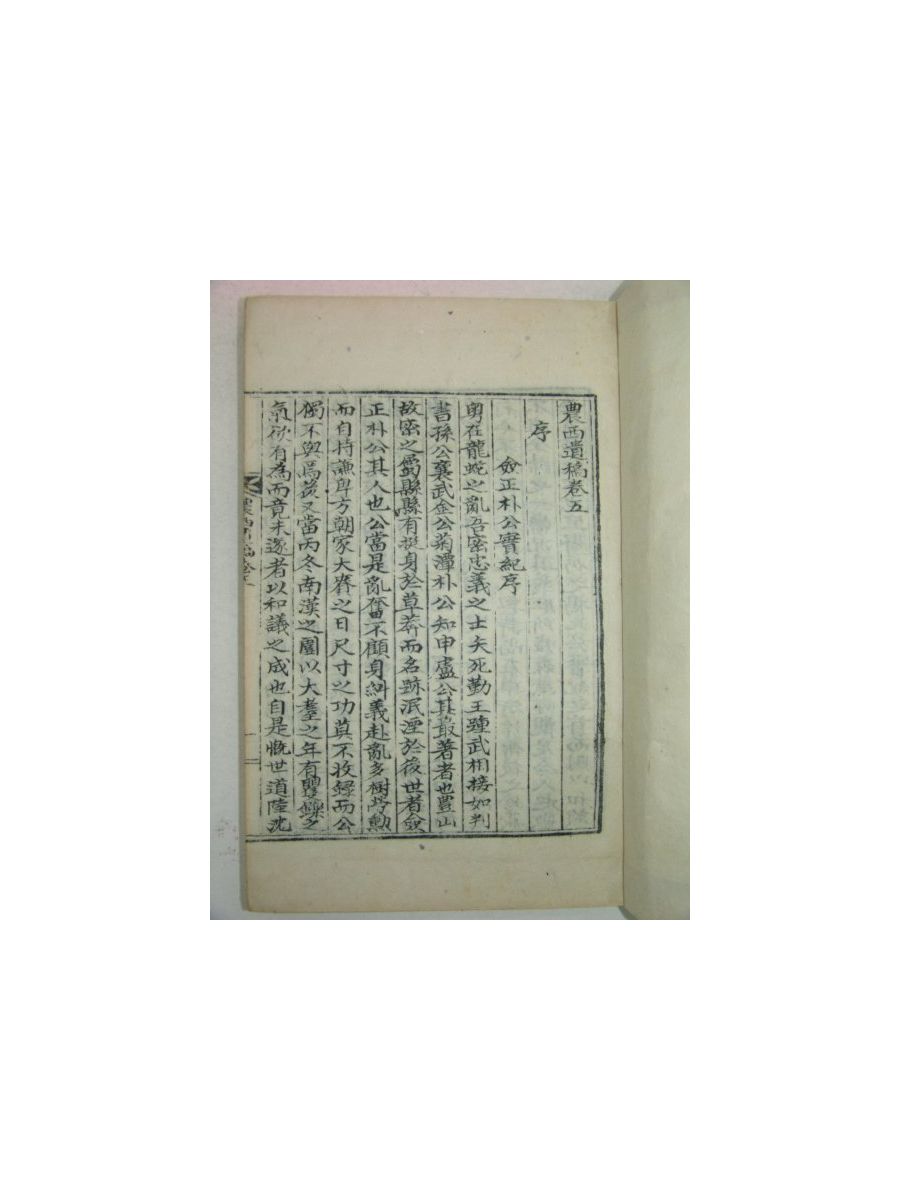 農西遺稿卷五
序
僉正朴公實紀序
粤在龍蛇之亂吾密忠義之士矢死勤王踵武相接如判
書孫公襄武金公菊潭朴公知申盧公其最著者也豊山
故密之屬縣縣有挺身於草莽而名跡泯湮於後世者僉
正朴公其人也公當是亂奮不顧身糾義赴亂多樹勞勳
而自持謙卑方朝家大賚之日尺寸之功莫不收錄而公
獨不與焉及又當丙冬南漢之圍以大耋之年有矍鑠之
氣欲有為而竟未遂者以和議之成也自是慨世道陸沈